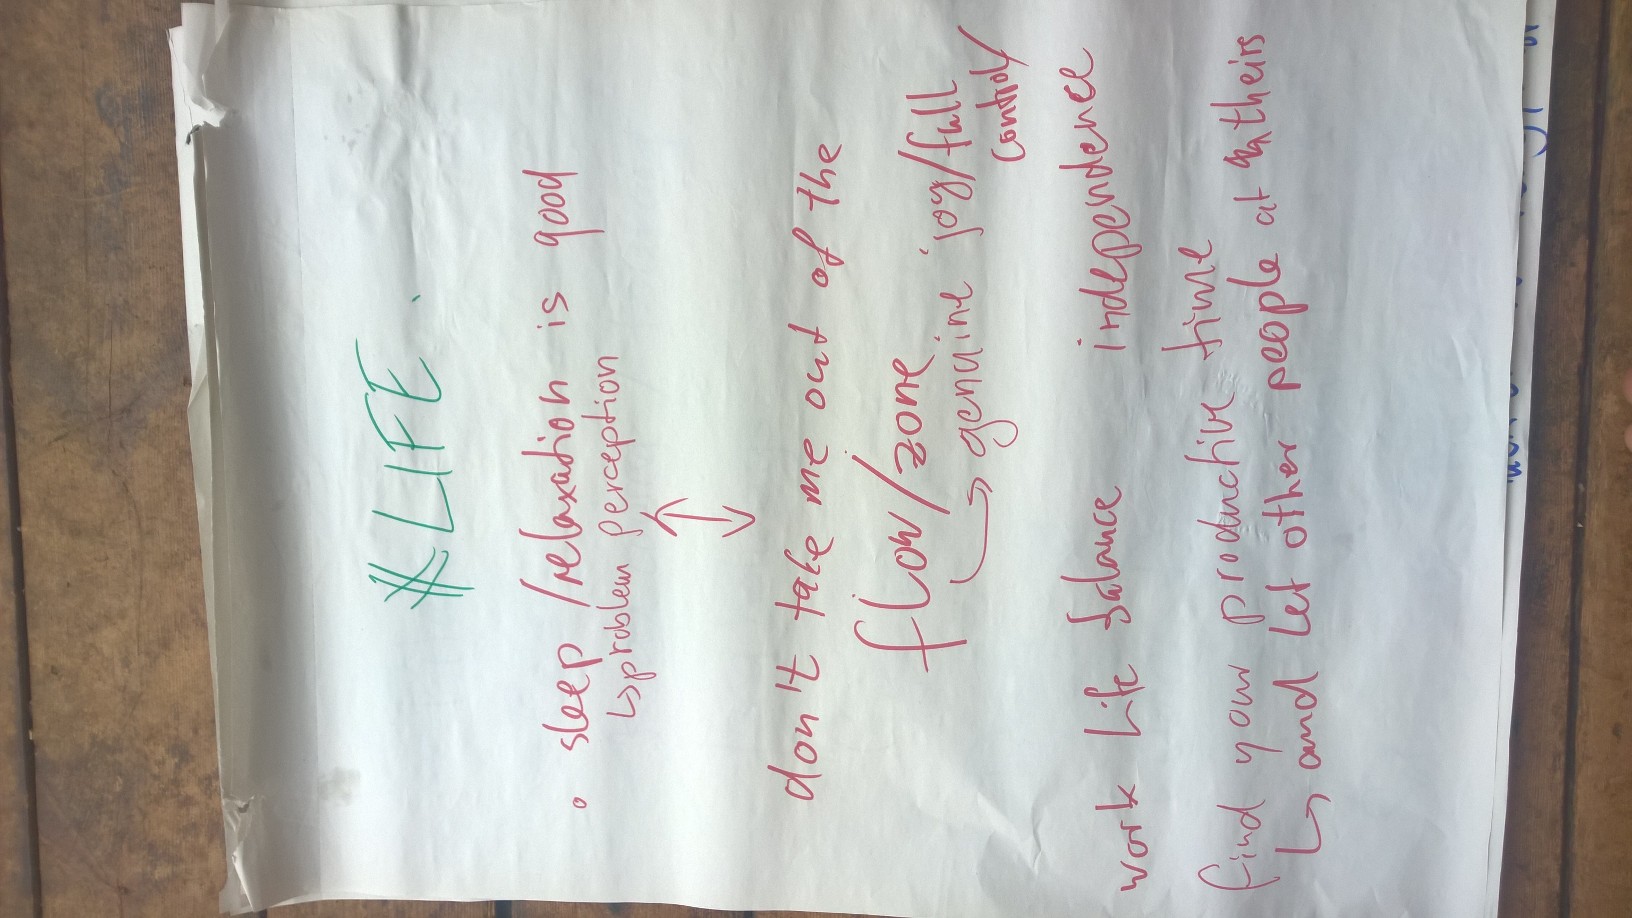 LIFE.
• sleep /relaxation is good
↳ problem perception
don't take me out of the
flow/zone
genuine joy/full
control/
independence
work Life balance
find your productive time
↳ and let other people at theirs